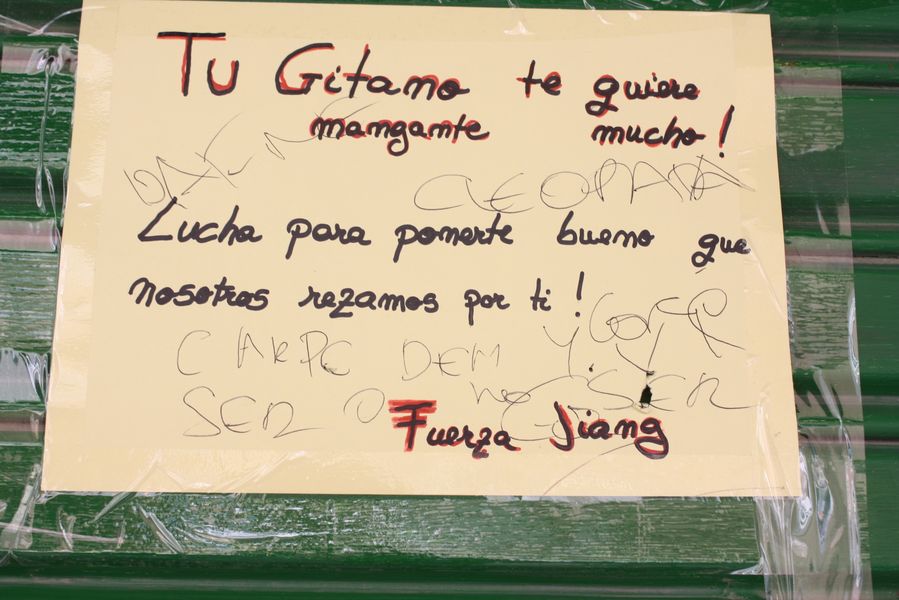 Tu Gitano te quiere
mangante mucho!
CLEOPATA
Lucha para ponerte bueno que
nosotros rezamos por ti!
CARPE DEM
SER O NO SER
Fuerza Jiang